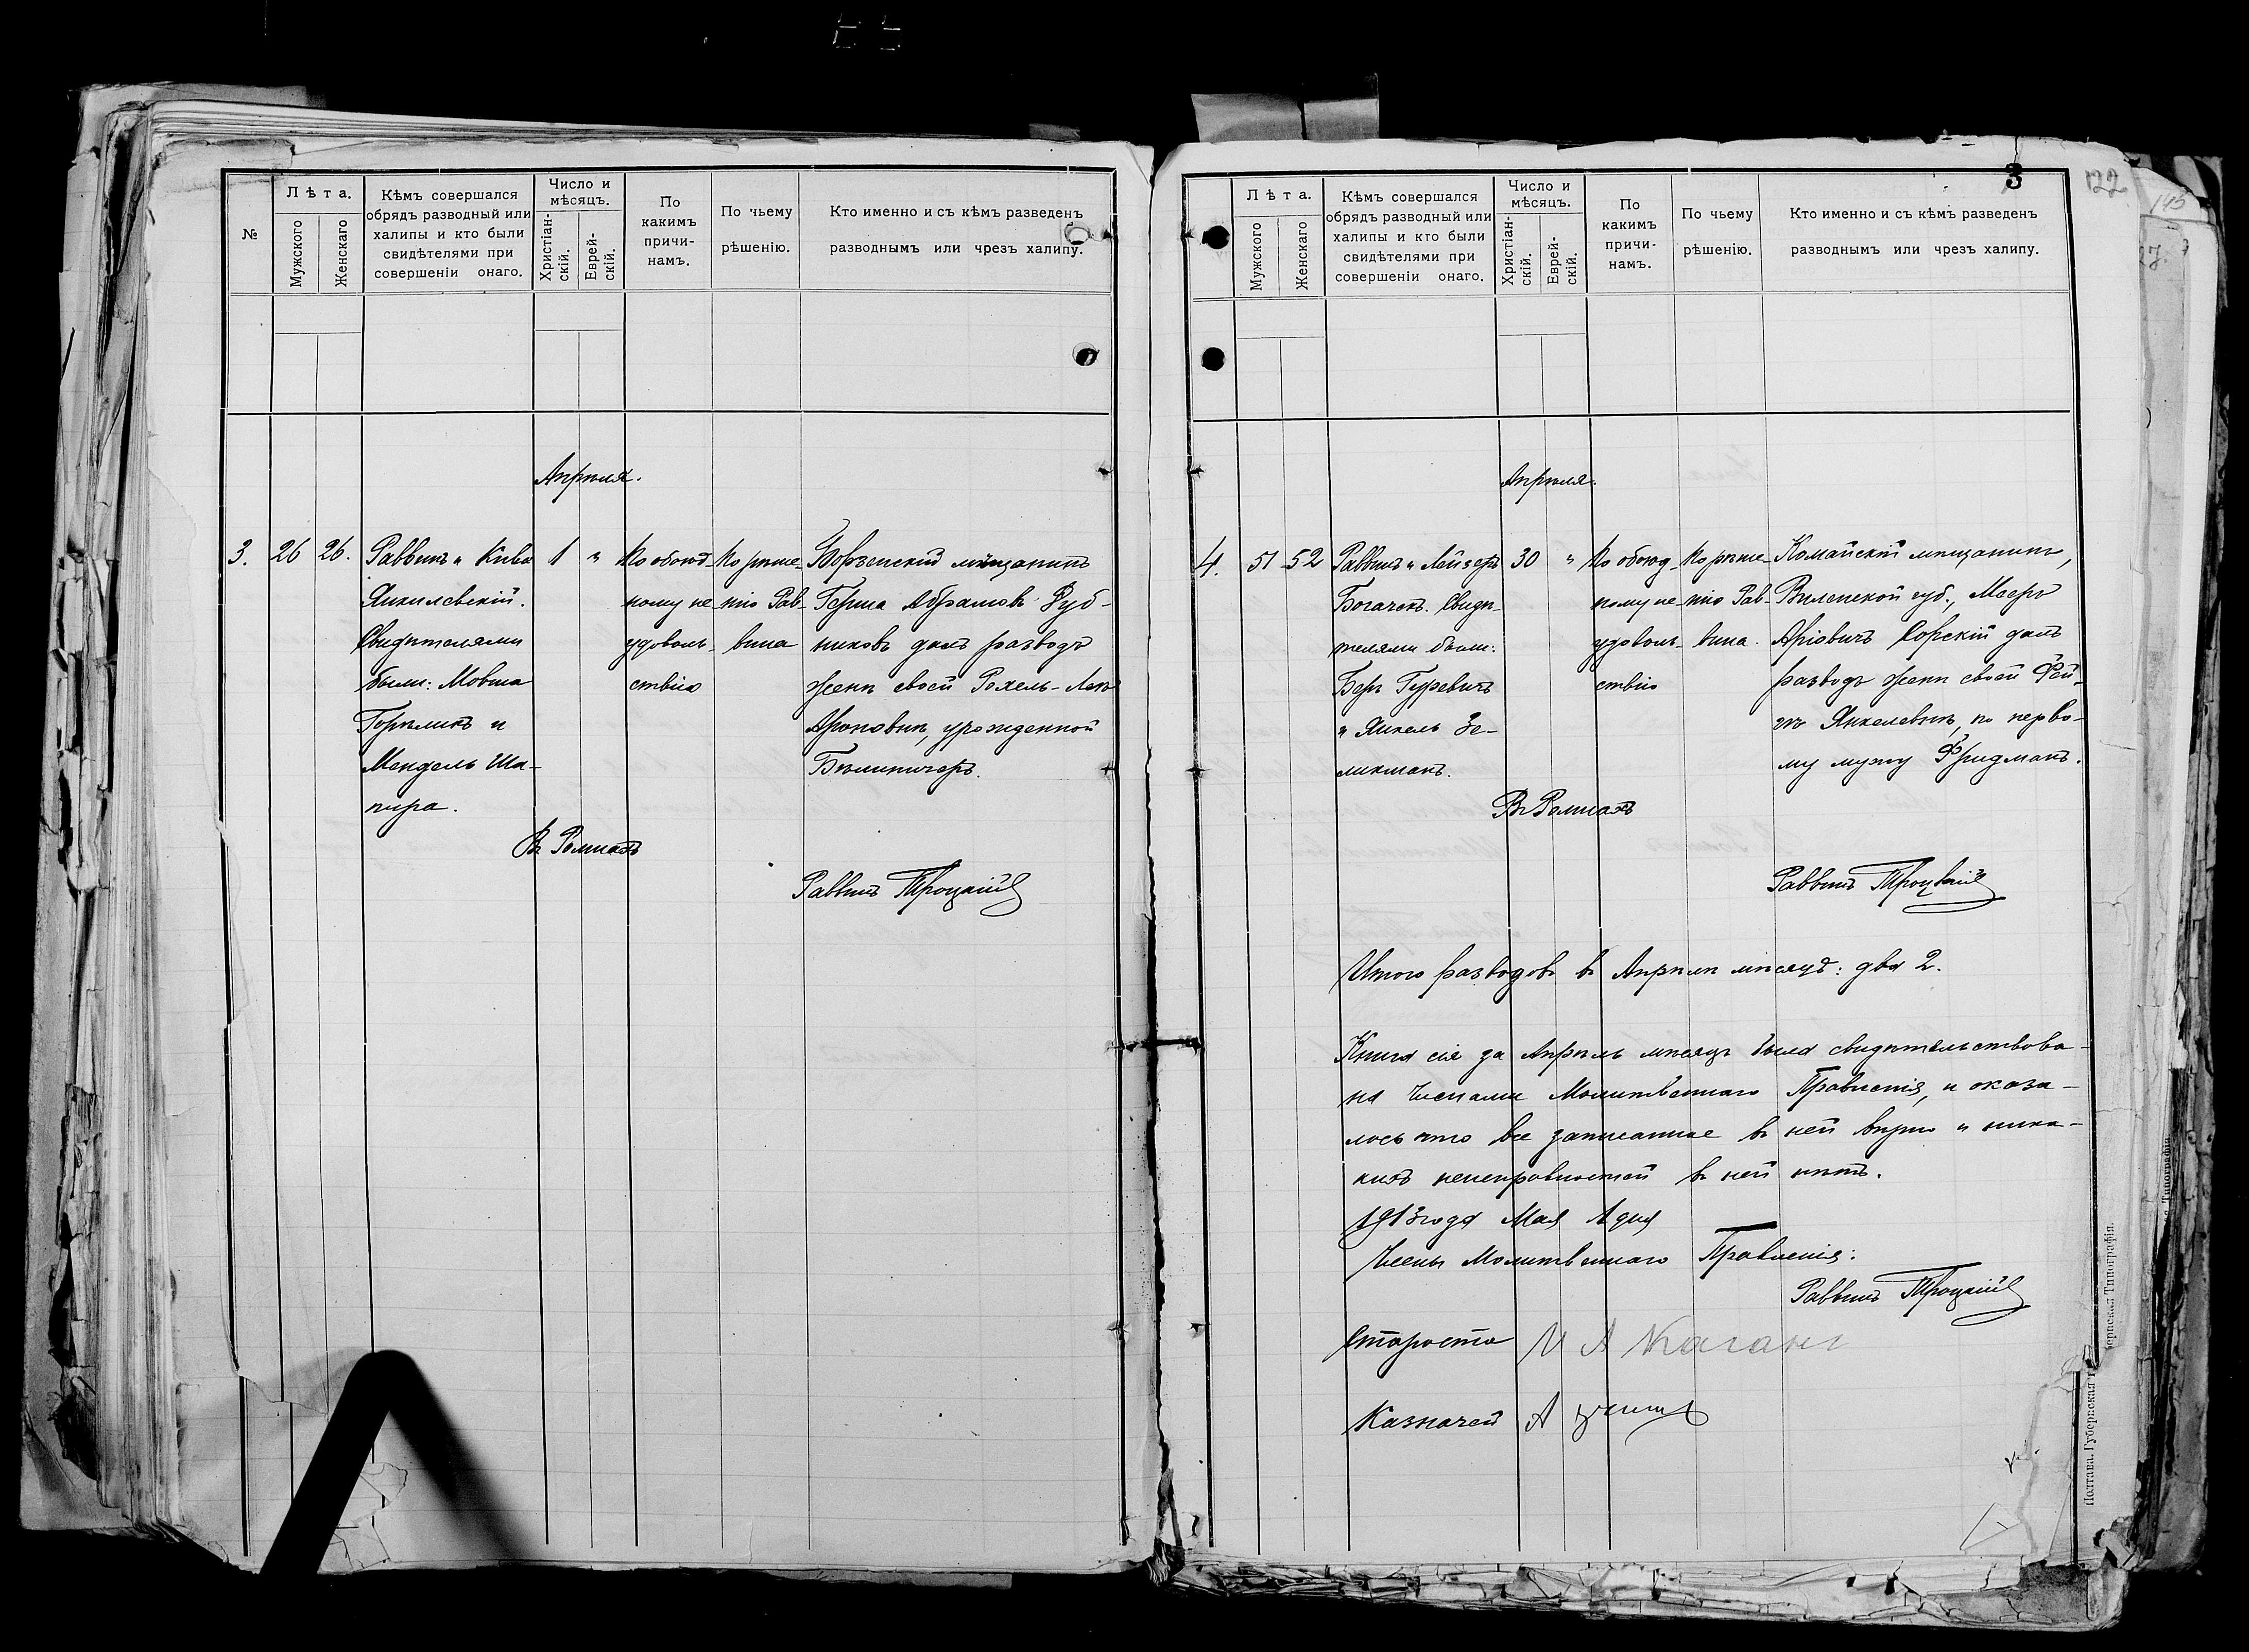 №
Лѣта.
Мужского
Женскаго
Кѣмъ совершался
обрядъ разводный или
халипы и кто были
свидѣтелями при
совершеніи онаго.
Число и
мѣсяцъ.
Христіан-
скій.
Еврей-
скій.
По
какимъ
причи-
намъ.
По чьему
рѣшенію.
Кто именно и съ кѣмъ разведенъ
разводнымъ или чрезъ халипу.
Апрѣля.
3.
26
26.
Раввинъ Кива
Янкилевскій.
Свидѣтелями
были: Мовша
Горѣликъ и
Мендель Ша-
пира.
1
"
По обоюд-
ному не-
удоволь-
ствію
По рѣше-
нію Рав-
вина
Борзенскій мѣщанинъ
Герша Абрамовъ Руб-
никовъ далъ разводъ
женѣ своей Рохель-Леѣ
Ароновнѣ, урожденной
Бѣлиничеръ.
Въ Ромнахъ
Раввинъ Троцкій
3
122
145
Лѣта.
Мужского
Женскаго
Кѣмъ совершался
обрядъ разводный или
халипы и кто были
свидѣтелями при
совершеніи онаго.
Число и
мѣсяцъ.
Христіан-
скій.
Еврей-
скій.
По
какимъ
причи-
намъ.
По чьему
рѣшенію.
Кто именно и съ кѣмъ разведенъ
разводнымъ или чрезъ халипу.
Апрѣля.
4.
51
52
Раввинъ Лейзеръ
Богачекъ. Свидѣ-
телями были:
Беръ Гуревичъ
и Янкель Зе-
ликманъ.
30
"
По обоюд-
ному не-
удоволь-
ствію
По рѣше-
нію Рав-
вина.
Комайскій мѣщанинъ,
Виленской губ., Мееръ
Аріовичъ Сорскій далъ
разводъ женѣ своей Фей-
гѣ Янкелевнѣ, по перво-
му мужу Фридманъ.
Въ Ромнахъ
Раввинъ Троцкій
Итого разводовъ въ Апрѣлѣ мѣсяцѣ: два 2.
Книга сія за Апрѣль мѣсяцъ была свидѣтельствова-
на Членами Молитвеннаго Правленія, и оказа-
лось что все записанное въ ней вѣрно и ника-
кихъ неисправностей въ ней нѣтъ.
1913 года Мая 1 дня
Члены Молитвеннаго Правленія:
Раввинъ Троцкій
Староста И А Каганъ
Казначей А
Полтава. Губернская